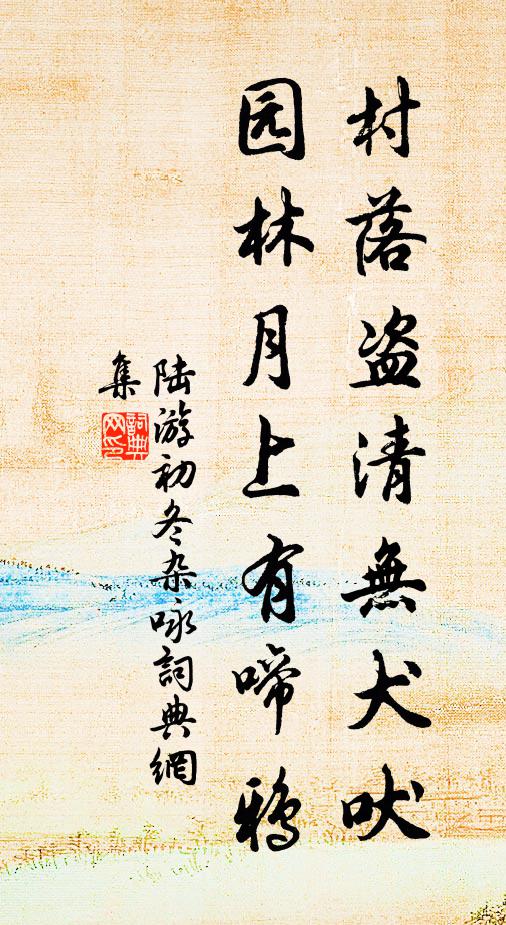 村落盗清無犬吠
园林月上有啼鸦
陆游初冬杂咏詞典網
集
詞典
网印